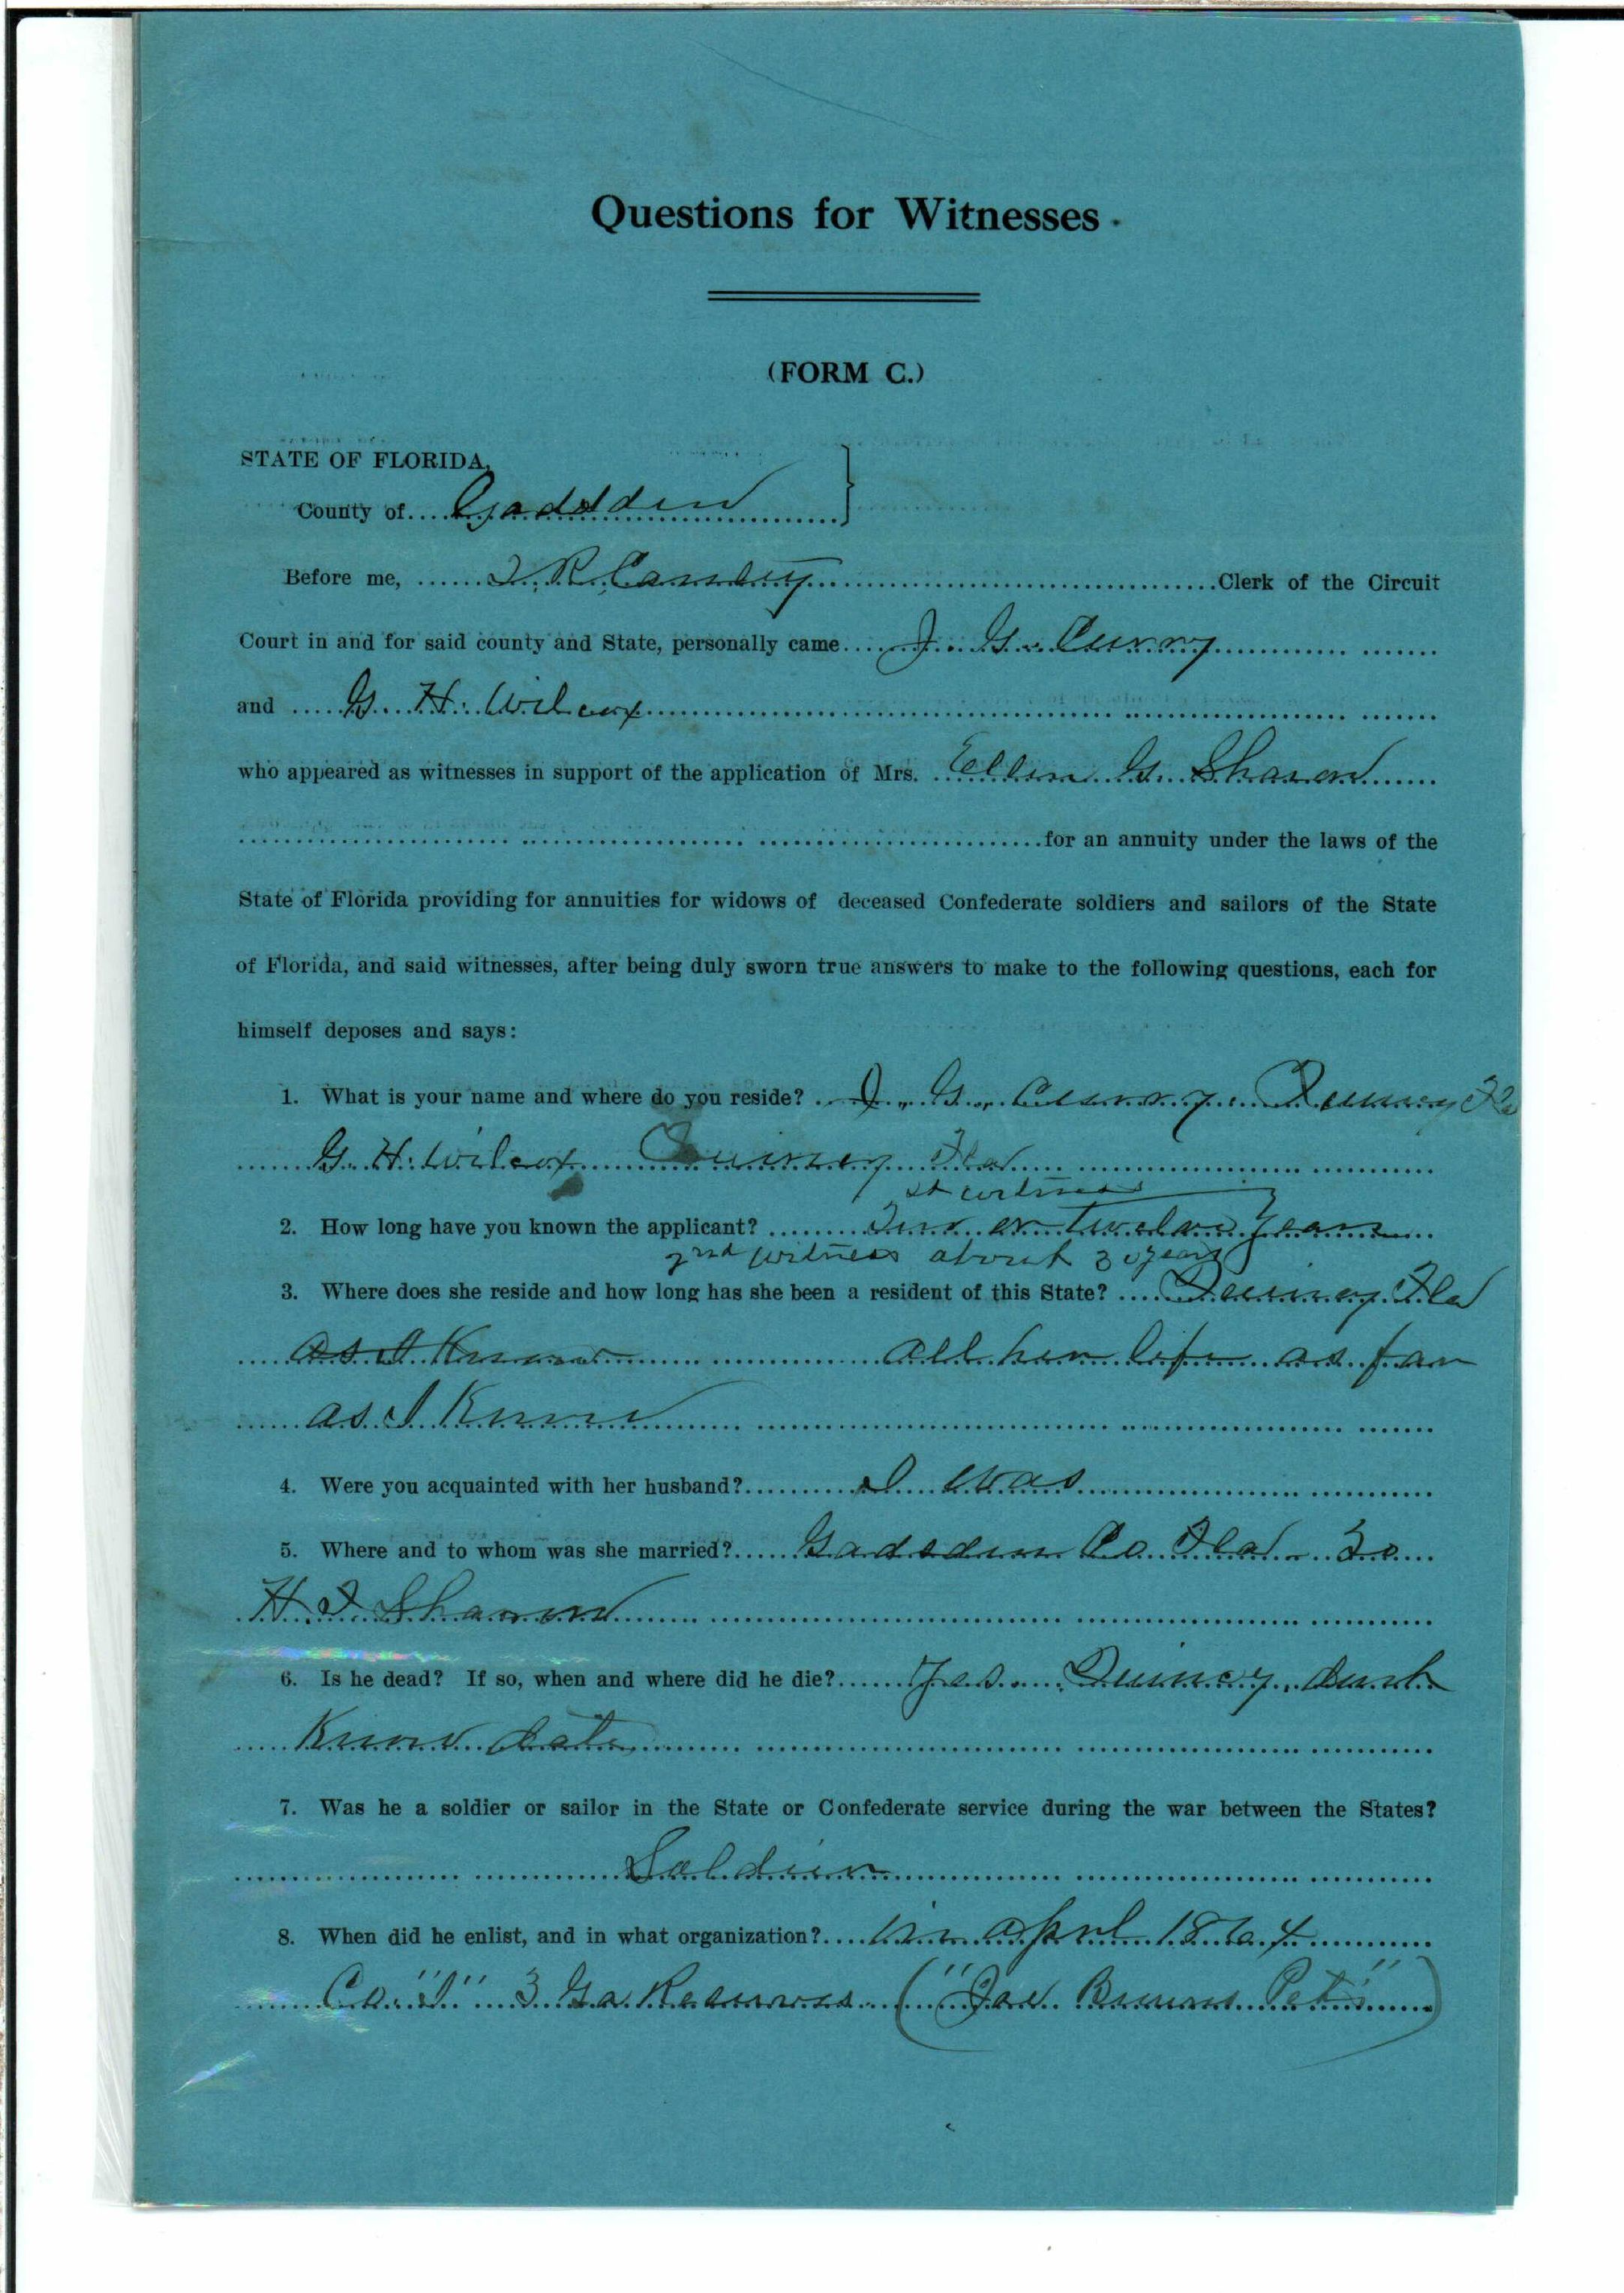 Questions for Witnesses
(FORM C.)
STATE OF FLORIDA,
County of Gadsden
Before me, R. Clerk of the Circuit
Court in and for said county and State, personally came J. G. Curry
and G. H. Wilcox
who appeared as witnesses in support of the application of Mrs. Ellen G. Sharon
for an annuity under the laws of the
State of Florida providing for annuities for widows of deceased Confederate soldiers and sailors of the State
of Florida, and said witnesses, after being duly sworn true answers to make to the following questions, each for
himself deposes and says:
1. What is your name and where do you reside? J. G. Curry. Quincy Fla
G. H. Wilcox Quincy Fla
st witness
2. How long have you known the applicant? Ten or Twelve years
2nd witness about 30 years
3. Where does she reside and how long has she been a resident of this State? Quincy Fla
as I Know all her life as far
as I Know
4. Were you acquainted with her husband? I was
5. Where and to whom was she married? Gadsden Co Fla To
H. T. Sharon
6. Is he dead? If so, when and where did he die? Yes. Quincy, dont
Know date
7. Was he a soldier or sailor in the State or Confederate service during the war between the States?
Soldier
8. When did he enlist, and in what organization? in april 1864
Co. "I" 3 Ga Reserves ("Joe Browns Pets")